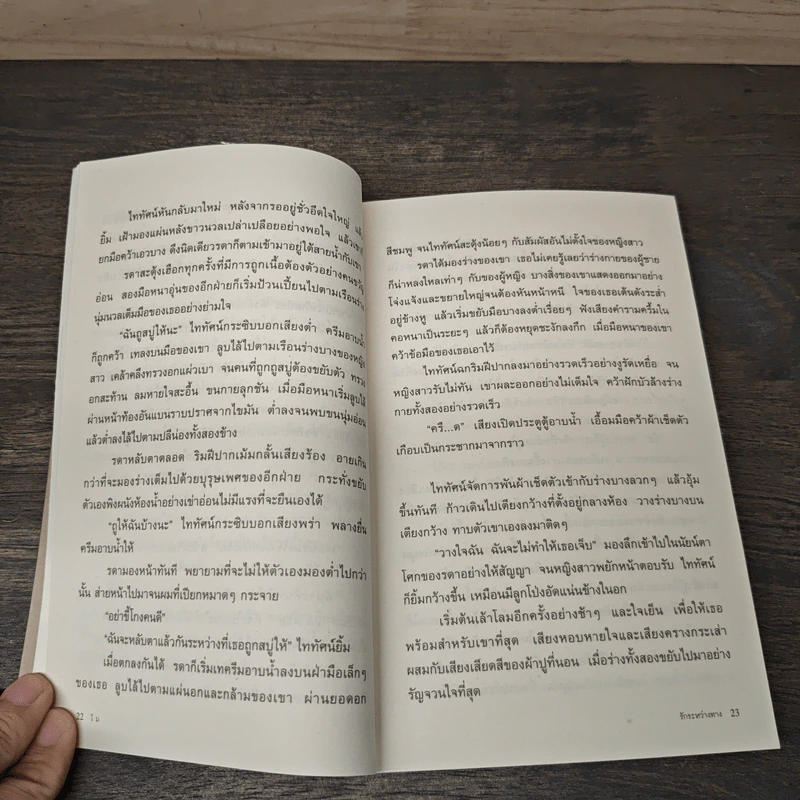 ไททัศน์หันกลับมาใหม่ หลังจากรออยู่ชั่วอึดใจใหญ่ แล้ว
ยิ้ม เฝ้ามองแผ่นหลังขาวนวลเปล่าเปลือยอย่างพอใจ แล้วเขา
ยกมือคว้าเอวบาง ดึงนิดเดียวรดาก็ตามเข้ามาอยู่ใต้สายน้ำกับเขา
รดาสะดุ้งเฮือกทุกครั้งที่มีการถูกเนื้อต้องตัวอย่างคน
อ่อน สองมือหนาอุ่นของอีกฝ่ายก็เริ่มป้วนเปี้ยนไปตามเรือนร่าง
นุ่มนวลเต็มมือของเธออย่างย่ามใจ
“ฉันถูสบู่ให้นะ” ไททัศน์กระซิบบอกเสียงต่ำ ครีมอาบน้ำ
ก็ถูกคว้า เทลงบนมือของเขา ลูบไล้ไปตามเรือนร่างบางของหญิง
สาว เคล้าคลึงทรวงอกแผ่วเบา จนคนที่ถูกถูสบู่ต้องขยับตัว ทรวง
อกสะท้าน ลมหายใจสะอื้น ขนกายลุกชัน เมื่อมือหนาเริ่มลูบไล้
ผ่านหน้าท้องอันแบนราบปราศจากไขมัน ต่ำลงจนพบขนนุ่มอ่อน
แล้วต่ำลงไล้ไปตามปลีน่องทั้งสองข้าง
รดาหลับตาตลอด ริมฝีปากเม้มกลั้นเสียงร้อง อายเกิน
กว่าที่จะมองร่างเต็มไปด้วยบุรุษเพศของอีกฝ่าย กระทั่งขยับ
ตัวเองพิงผนังห้องน้ำอย่างเข่าอ่อนไม่มีแรงที่จะยืนเองได้
“ถูให้ฉันบ้างนะ” ไททัศน์กระซิบบอกเสียงพร่า พลางยื่น
ครีมอาบน้ำให้
รดามองหน้าทันที พยายามที่จะไม่ให้ตัวเองมองต่ำไปกว่า
นั้น ส่ายหน้าไปมาจนผมที่เปียกหมาดๆ กระจาย
“อย่าขี้โกงคนดี”
“ฉันจะหลับตาแล้วกันระหว่างที่เธอถูกสบู่ให้” ไททัศน์ยิ้ม
เมื่อตกลงกันได้ รดาก็เริ่มเทครีมอาบน้ำลงบนฝ่ามือเล็กๆ
ของเธอ ลูบไล้ไปตามแผ่นอกและกล้ามของเขา ผ่านยอดอก
22 โม
สีชมพู จนไททัศน์สะดุ้งน้อยๆ กับสัมผัสอันไม่ตั้งใจของหญิงสาว
รดาได้มองร่างของเขา เธอไม่เคยรู้เลยว่าร่างกายของผู้ชาย
ก็น่าหลงใหลเท่าๆ กับของผู้หญิง บางสิ่งของเขาแสดงออกมาอย่าง
โจ่งแจ้งและขยายใหญ่จนต้องหันหน้าหนี ใจของเธอเต้นดังระส่ำ
อยู่ข้างหู แล้วเริ่มขยับมือบางลงต่ำเรื่อยๆ ฟังเสียงคำรามครึ้มใน
คอหนาเป็นระยะๆ แล้วก็ต้องหยุดชะงักลงกึก เมื่อมือหนาของเขา
คว้าข้อมือของเธอเอาไว้
ไททัศน์ฉกริมฝีปากลงมาอย่างรวดเร็วอย่างงูรัดเหยื่อ จน
หญิงสาวรับไม่ทัน เขาผละออกอย่างไม่เต็มใจ คว้าฝักบัวล้างร่าง
กายทั้งสองอย่างรวดเร็ว
“ครี...ด” เสียงเปิดประตูตู้อาบน้ำ เอื้อมมือคว้าผ้าเช็ดตัว
เกือบเป็นกระชากมาจากราว
ไททัศน์จัดการพันผ้าเช็ดตัวเข้ากับร่างบางลวกๆ แล้วอุ้ม
ขึ้นทันที ก้าวเดินไปเตียงกว้างที่ตั้งอยู่กลางห้อง วางร่างบางบน
เตียงกว้าง ทาบตัวเขาเองลงมาติดๆ
“วางใจฉัน ฉันจะไม่ทำให้เธอเจ็บ” มองลึกเข้าไปในนัยน์ตา
โศกของรดาอย่างให้สัญญา จนหญิงสาวพยักหน้าตอบรับ ไททัศน์
ก็ยิ้มกว้างขึ้น เหมือนมีลูกโป่งอัดแน่นข้างในอก
เริ่มต้นเล้าโลมอีกครั้งอย่างช้าๆ และใจเย็น เพื่อให้เธอ
พร้อมสำหรับเขาที่สุด เสียงหอบหายใจและเสียงครางกระเส่า
ผสมกับเสียงเสียดสีของผ้าปูที่นอน เมื่อร่างทั้งสองขยับไปมาอย่าง
รัญจวนใจที่สุด
รักระหว่างทาง 23